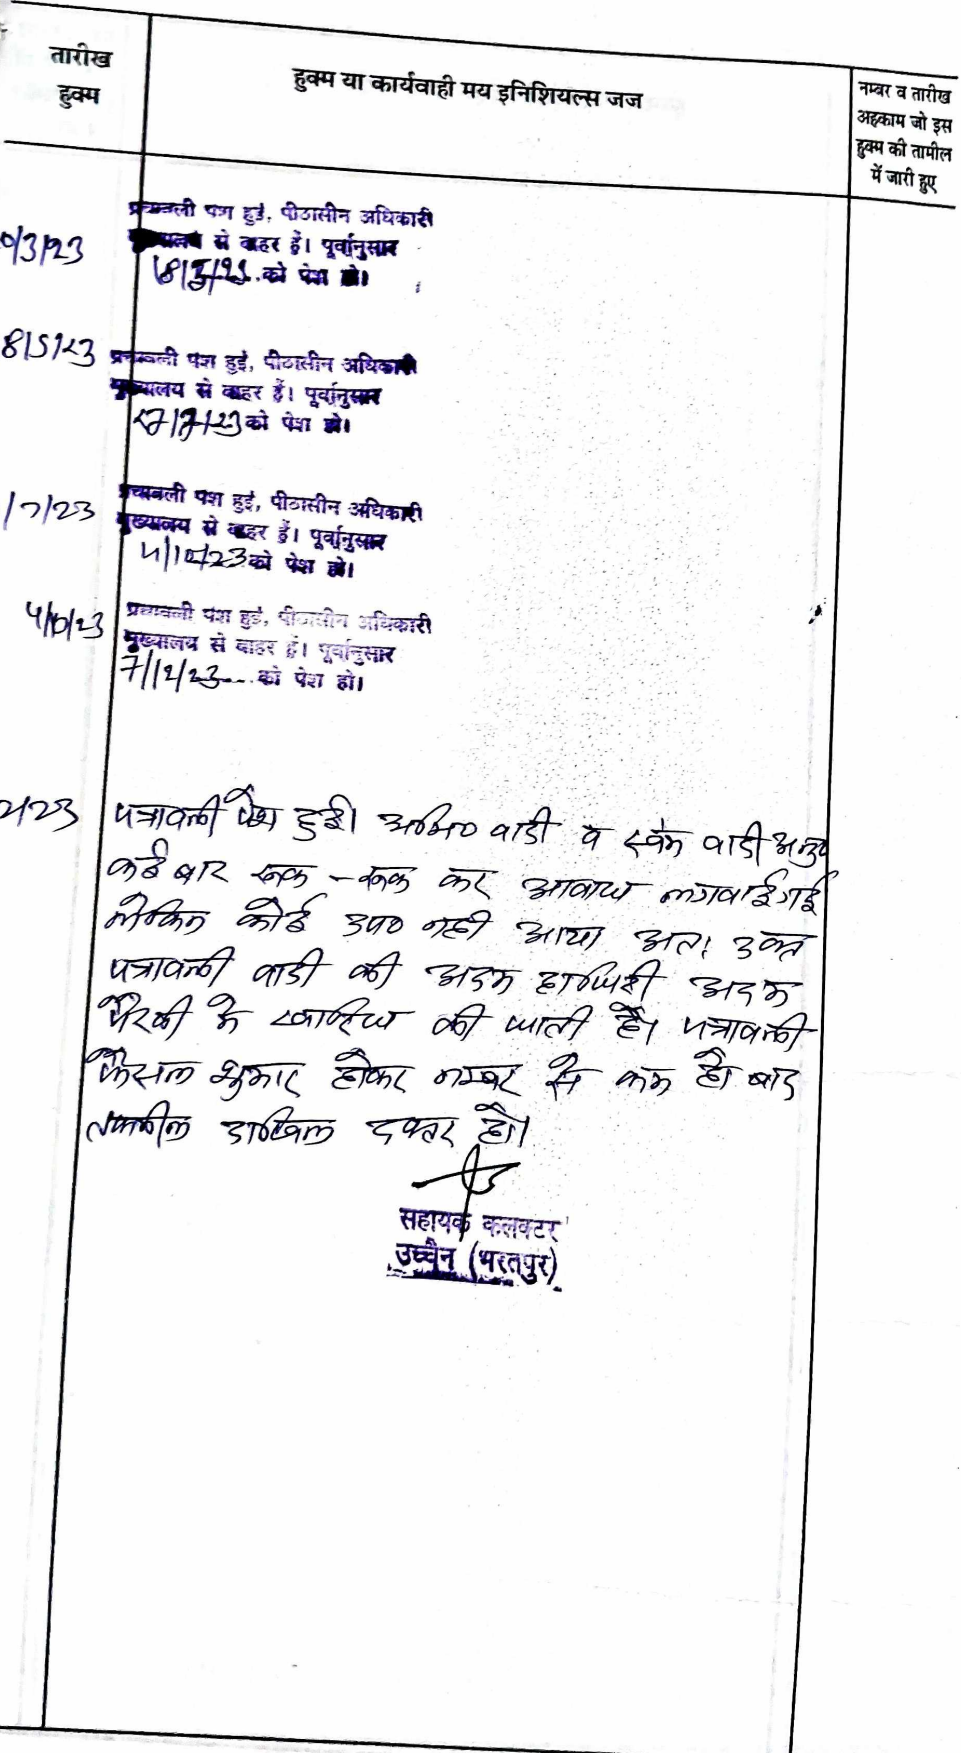 तारीख
हुक्म
हुक्म या कार्यवाही मय इनिशियल्स जज
नम्बर व तारीख
अहकाम जो इस
हुक्म की तामील
में जारी हुए
पत्रावली पेश हुई, पीठासीन अधिकारी
0/3/23
मुख्यालय से बाहर हैं। पूर्वानुसार
18/5/23 को पेश हो।
8/5/23
पत्रावली पेश हुई, पीठासीन अधिकारी
मुख्यालय से बाहर हैं। पूर्वानुसार
/7/23 को पेश हो।
/7/23
पत्रावली पेश हुई, पीठासीन अधिकारी
मुख्यालय से बाहर हैं। पूर्वानुसार
4/10/23 को पेश हो।
4/10/23
पत्रावली पेश हुई, पीठासीन अधिकारी
मुख्यालय से बाहर हैं। पूर्वानुसार
7/12/23 को पेश हो।
2/23
पत्रावली पेश हुई। अभि० वादी व स्वंम वादी
कई बार रूक - रूक कर आवाज लगवाई गई
लेकिन कोई उप० नही आया अतः उक्त
पत्रावली वादी की अदम हाजिरी अदम
पैरवी मे खारिज की जाती है। पत्रावली
फैसल शुमार होकर नम्बर से कम हो बाद
तकमील दाखिल दफ्तर हो।
सहायक कलक्टर
उच्चैन (भरतपुर)